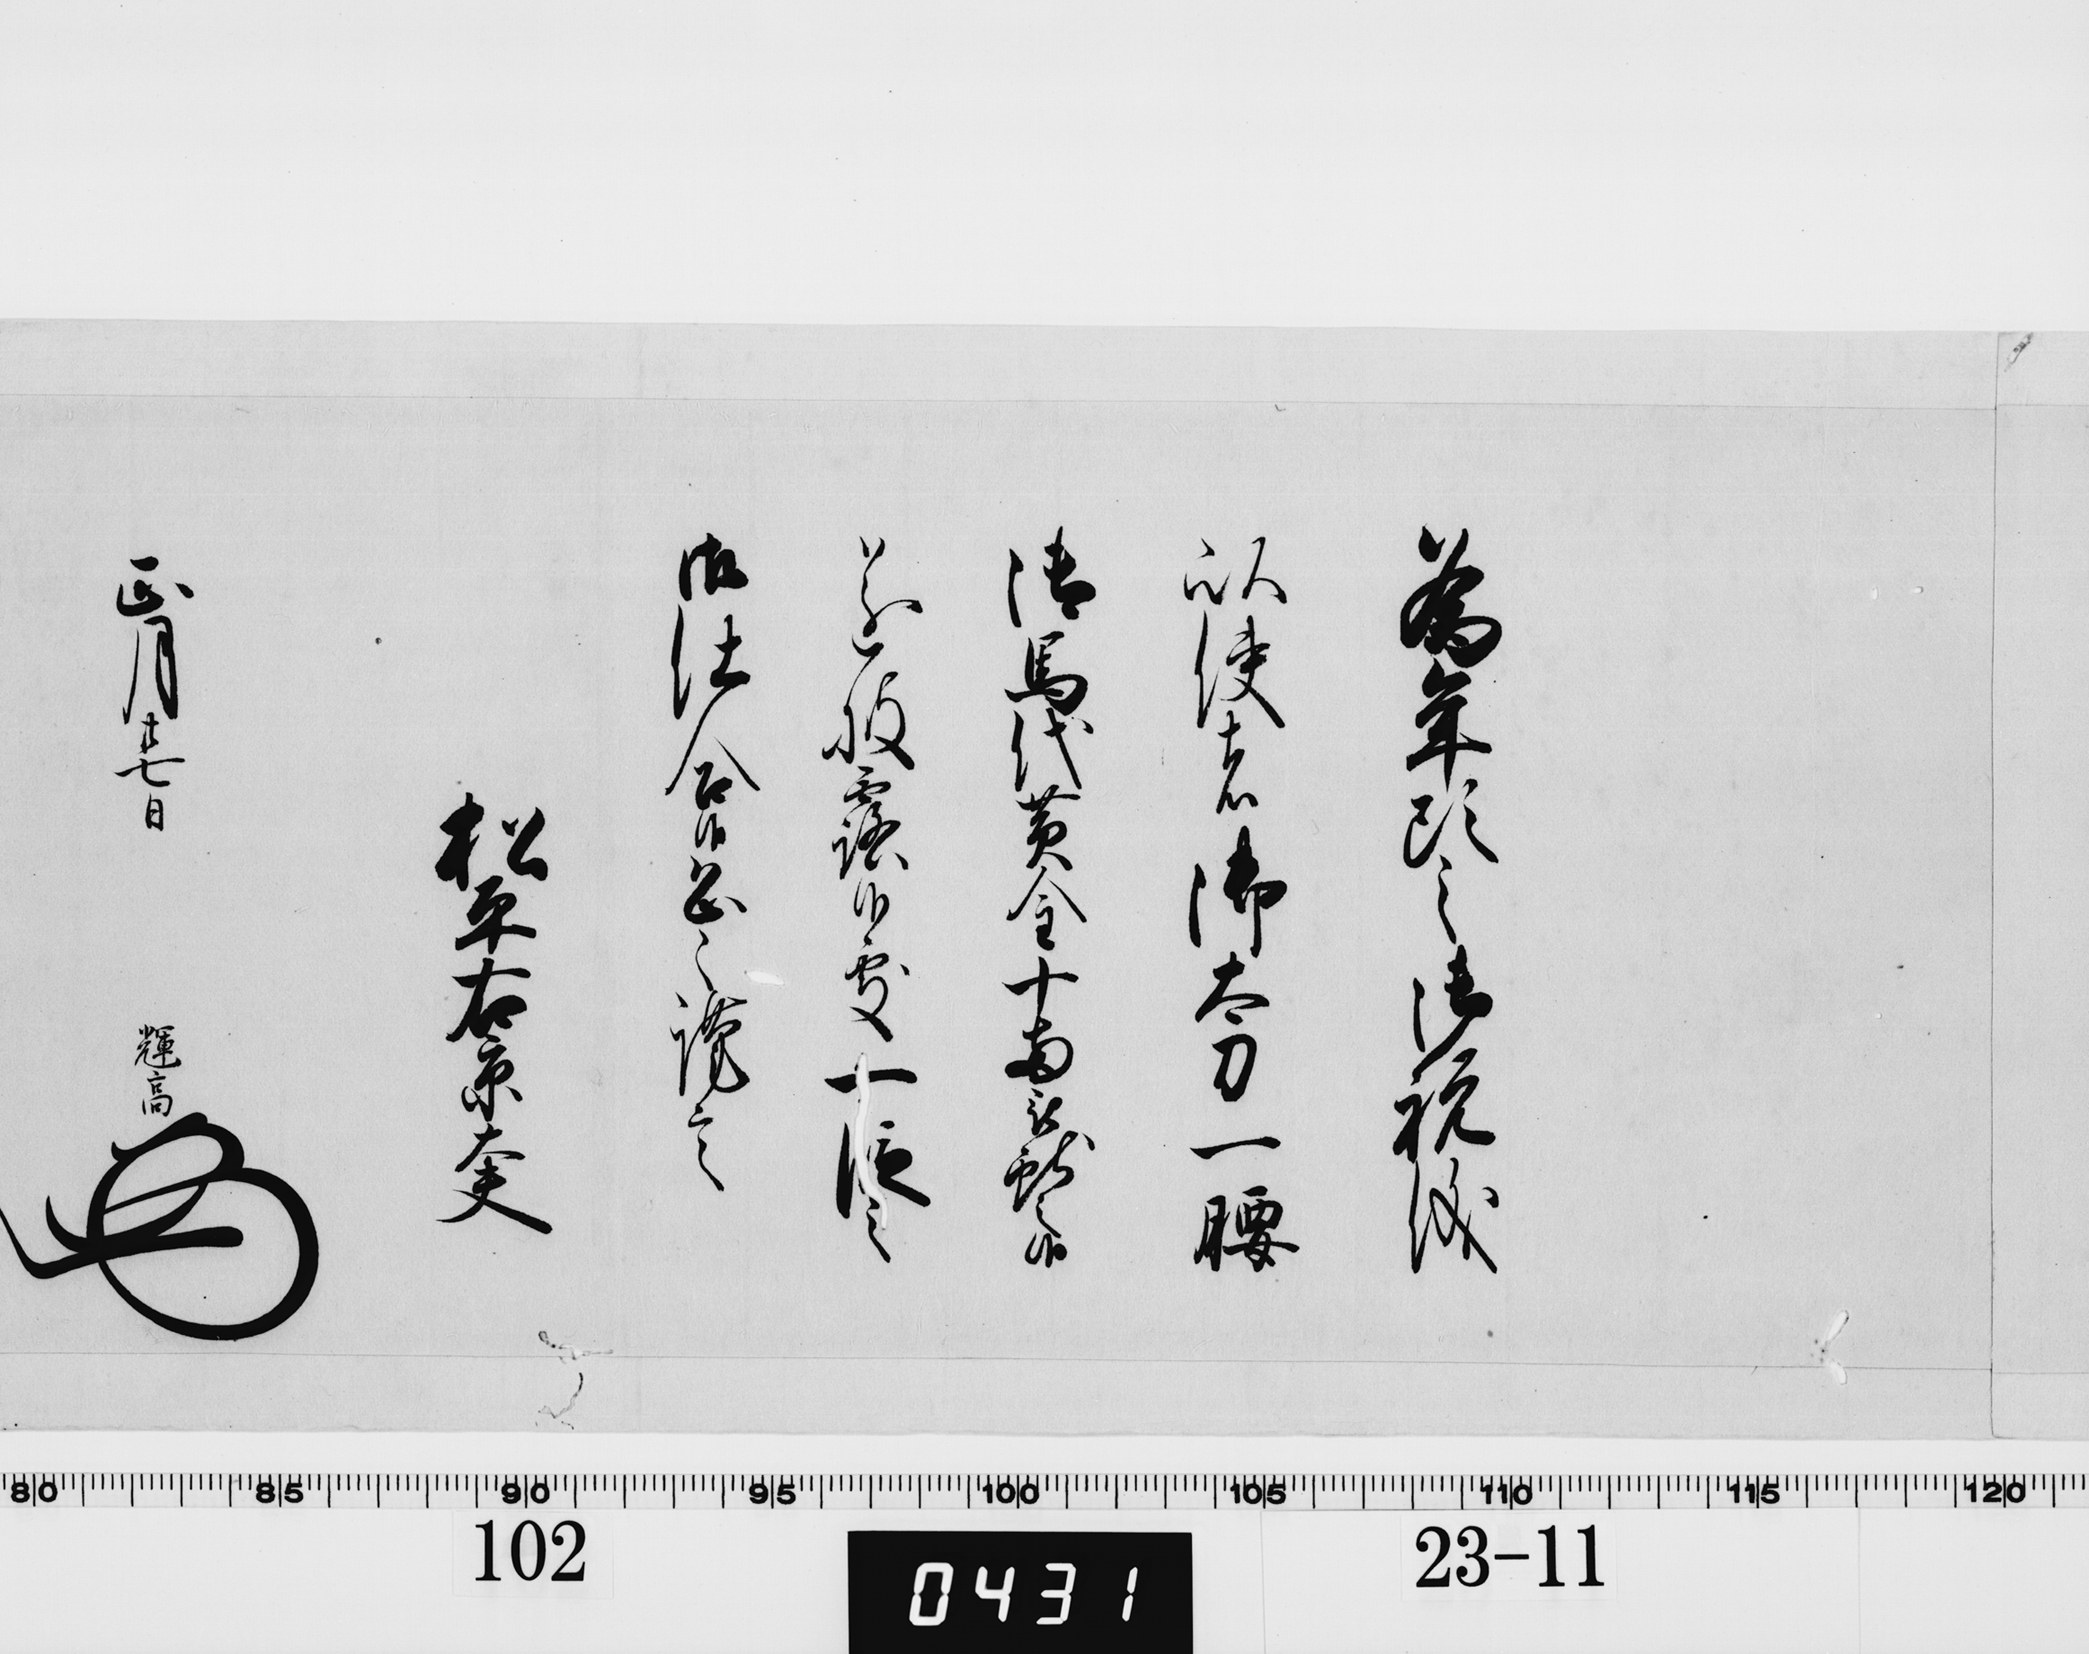 為年頭之御祝儀
以使者御太刀一腰
御馬代黄金十両被献之候
遂披露候処一段之
御仕合候恐々謹言
松平右京大夫
正月廿七日
輝高
80 85 90 95 100 105 110 115 120
102
0431
23-11